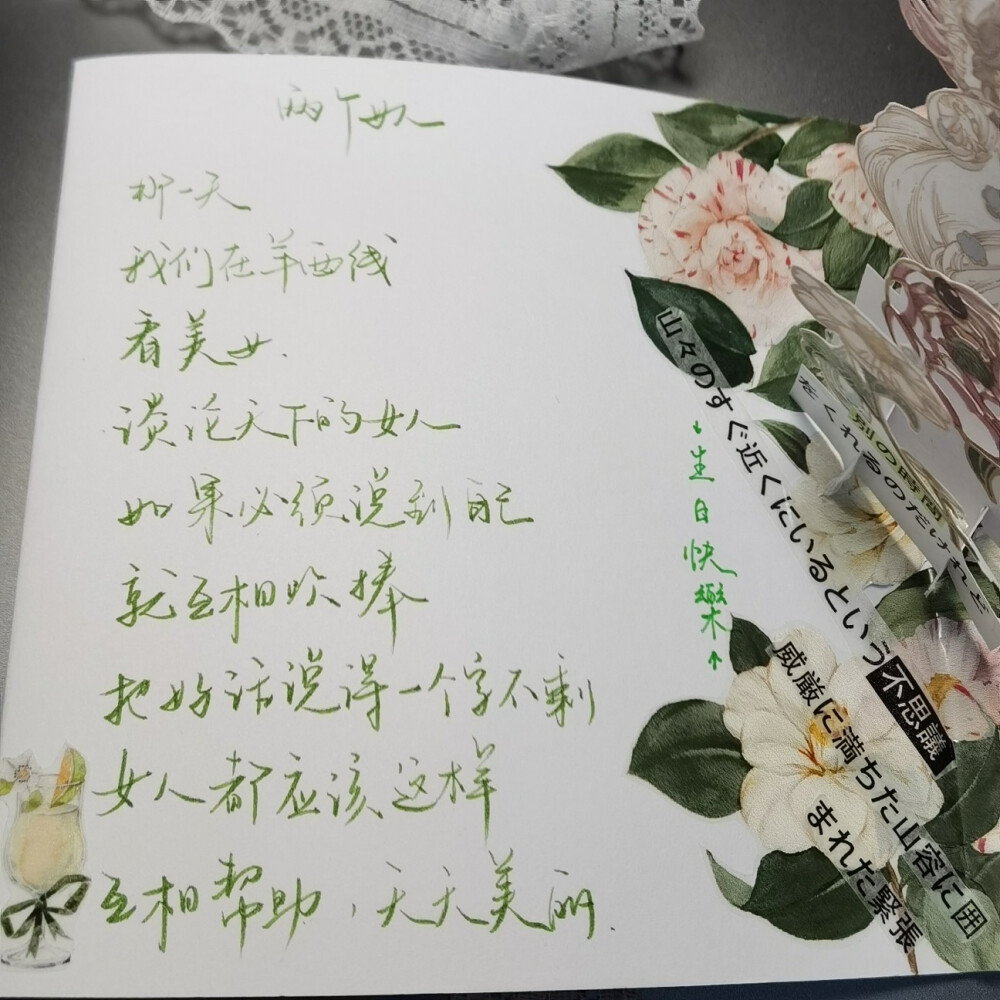 两个女人
那一天
我们在羊西线
看美女.
谈论天下的女人
如果必须说到自己
就互相吹捧
把好话说得一个字不剩
女人都应该这样
互相帮助，天天美丽.
↓生日快樂↑
山々のすぐ近くにいるという不思議
威厳に満ちた山容に囲
まれた緊張
別の時間
をくれるのだけれど